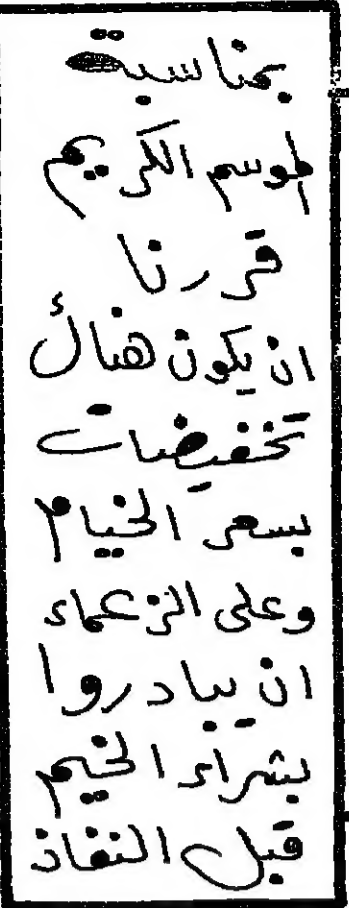 بمناسبة
الموسم الكريم
قررنا
ان يكون هناك
تخفيضات
بسعر الخيام
وعلى الزعماء
ان يبادروا
بشراء الخيم
قبل النفاذ